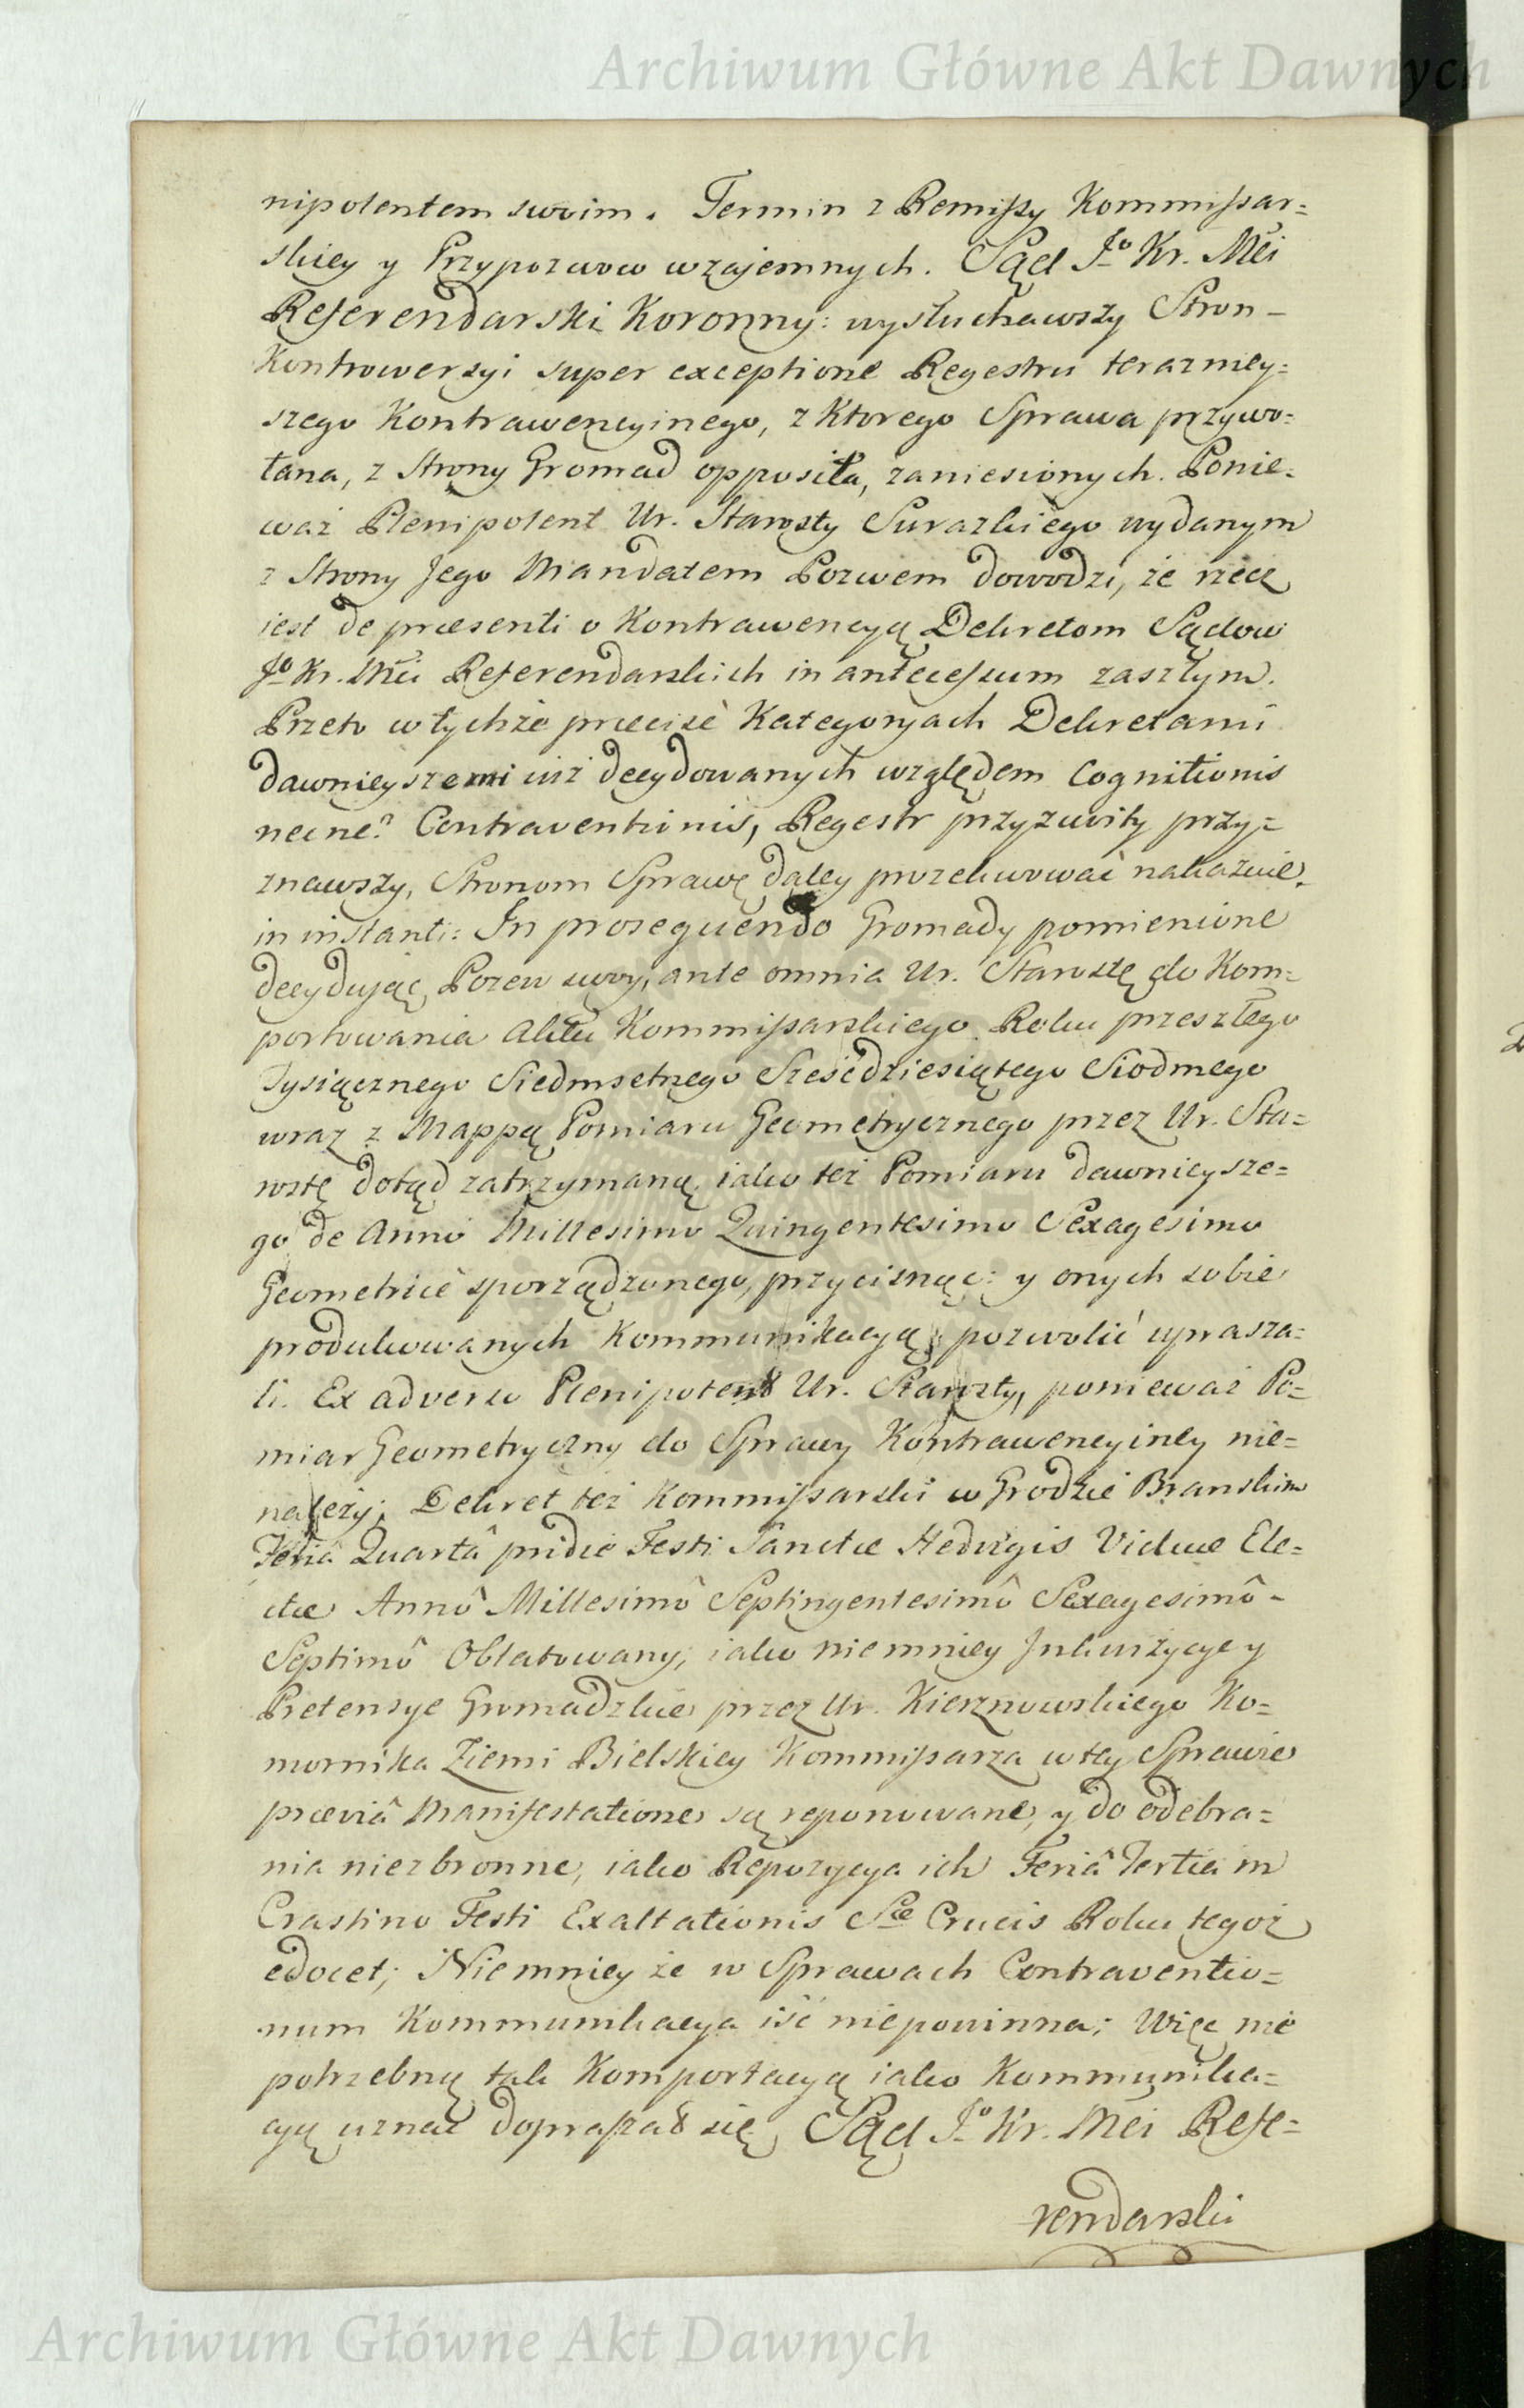 Archiwum Główne Akt Dawnych
nipolentem swoim. Termin z Remißy Kommißar=
skiey y Przypozwow wzajemnych. Sąd Jo Kr. Mći
Referendarski Koronny: wysłuchawszy Stron-
Kontrowersyi super exceptione Regestru terazniey=
szego Kontrawencyinego, z Ktorego Sprawa przywo=
łana, z Strony Gromad opposita, zaniesionych. Ponie=
waż Plenipotent Ur. Starosty Surazkiego wydanym
z Strony Jego Mandatem Pozwem dowodzi, że rzecz
iest de præsenti o Kontrawencyą Dekretom Sądow
Jo Kr. Mći Referendarskich in antecessum zaszłym.
Przeto w tychże præcisè Kategoryach Dekretami
dawnieyszemi iuż decydowanych względem Cognitionis
necne? Contraventionis, Regestr przyzwoity przy=
znawszy, Stronom Sprawę daley prozekwować nakazuie.
in instanti: In prosequendo Gromady pomienione
decydując Pozew swoy, ante omnia Ur. Starostę do Kom=
portowania Aktu Kommißarskiego Roku przeszłego
Tysiącznego Siedmsetnego Sześćdziesiątego Siodmego
wraz z Mappą Pomiaru Geometrycznego przez Ur. Sta=
rostę dotąd zatrzymaną, iako też Pomiaru dawnieysze=
go de Anno Millesimo Quingentesimo Sexagesimo
Geometricè sporządzonego, przycisnąć: y onych sobie
produkowanych Kommunikacyą pozwolić uprasza=
li. Ex adverso Plenipotent Ur. Starosty, ponieważ Po=
miar Geometryczny do Sprawy Kontrawencyiney nie=
należy; Dekret też Kommißarski w Grodzie Branskim
Feriâ Quartâ pridie Festi Sanctæ Hedvigis Viduæ Ele=
ctæ Annô Millesimô Septingentesimô Sexagesimô-
Septimô Oblatowany, iako niemniey Inkwizycye y
Pretensye Gromadzkie przez Ur. Kierznowskiego Ko=
mornika Ziemi Bielskiey Kommißarza w tey Sprawie
præviâ Manifestatione są reponowane, y do odebra=
nia niezbronne, iako Repozycya ich Feriâ Tertia in
Crastino Festi Exaltationis Sæ Crucis Roku tegoż
edocet; Niemniey że w Sprawach Contraventio=
num Kommunikacya iść niepowinna; Więc nie
potrzebną tak Komportacyą iako Kommunika=
cyą uznać dopraszał się. Sąd Jo Kr. Mći Refe=
rendarski
Archiwum Główne Akt Dawnych